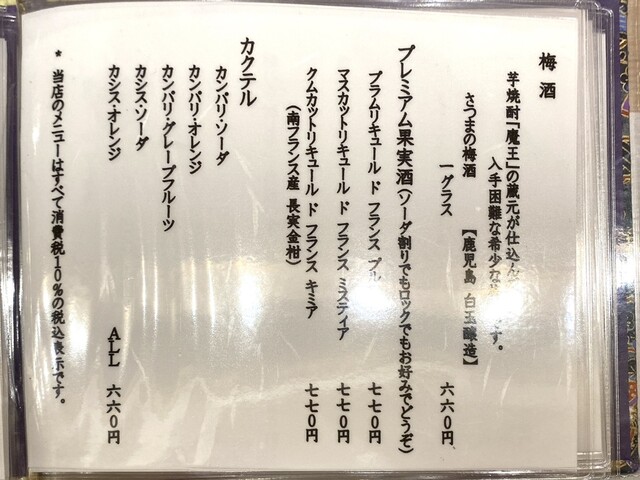 梅酒
芋焼酎「魔王」の蔵元が仕込ん
入手困難な希少な です。
さつまの梅酒 【鹿児島 白玉醸造】
一グラス 六六〇円
プレミアム果実酒(ソーダ割りでもロックでもお好みでどうぞ)
プラムリキュール ド フランス プル 七七〇円
マスカットリキュール ド フランス ミスティア 七七〇円
クムカットリキュール ド フランス キミア 七七〇円
(南フランス産 長実金柑)
カクテル
カンパリ・ソーダ
カンパリ・オレンジ
カンパリ・グレープフルーツ
カシス・ソーダ
カシス・オレンジ ALL 六六〇円
* 当店のメニューはすべて消費税10%の税込表示です。